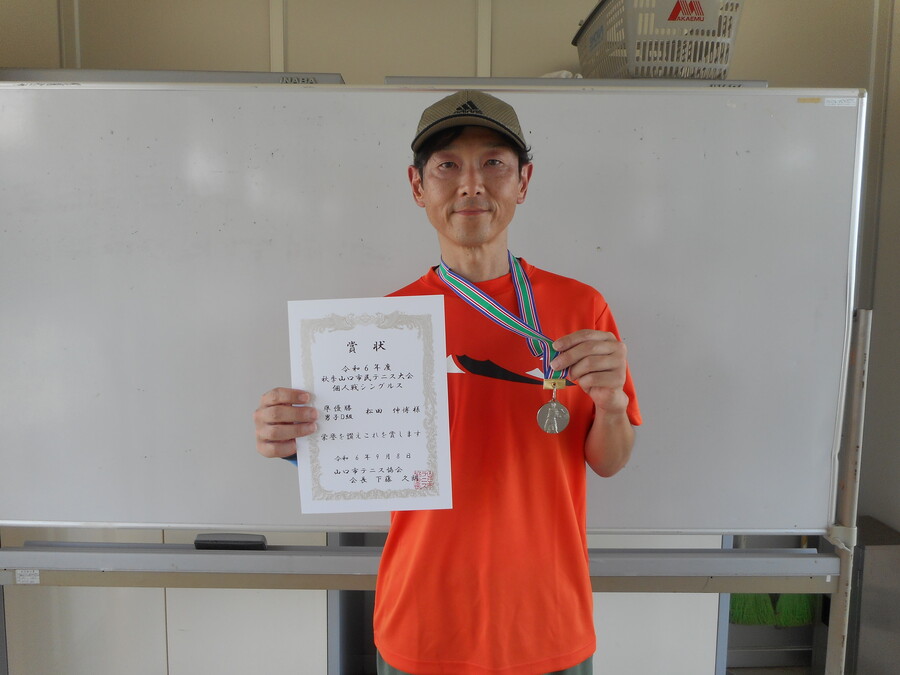 MAKAEMU
賞状
令和6年度
秋季山口市民テニス大会
個人戦シングルス
準優勝
男子D級 松田 伸博様
栄誉を讃えこれを賞します
令和6年9月8日
山口市テニス協会
会長 下藤 久